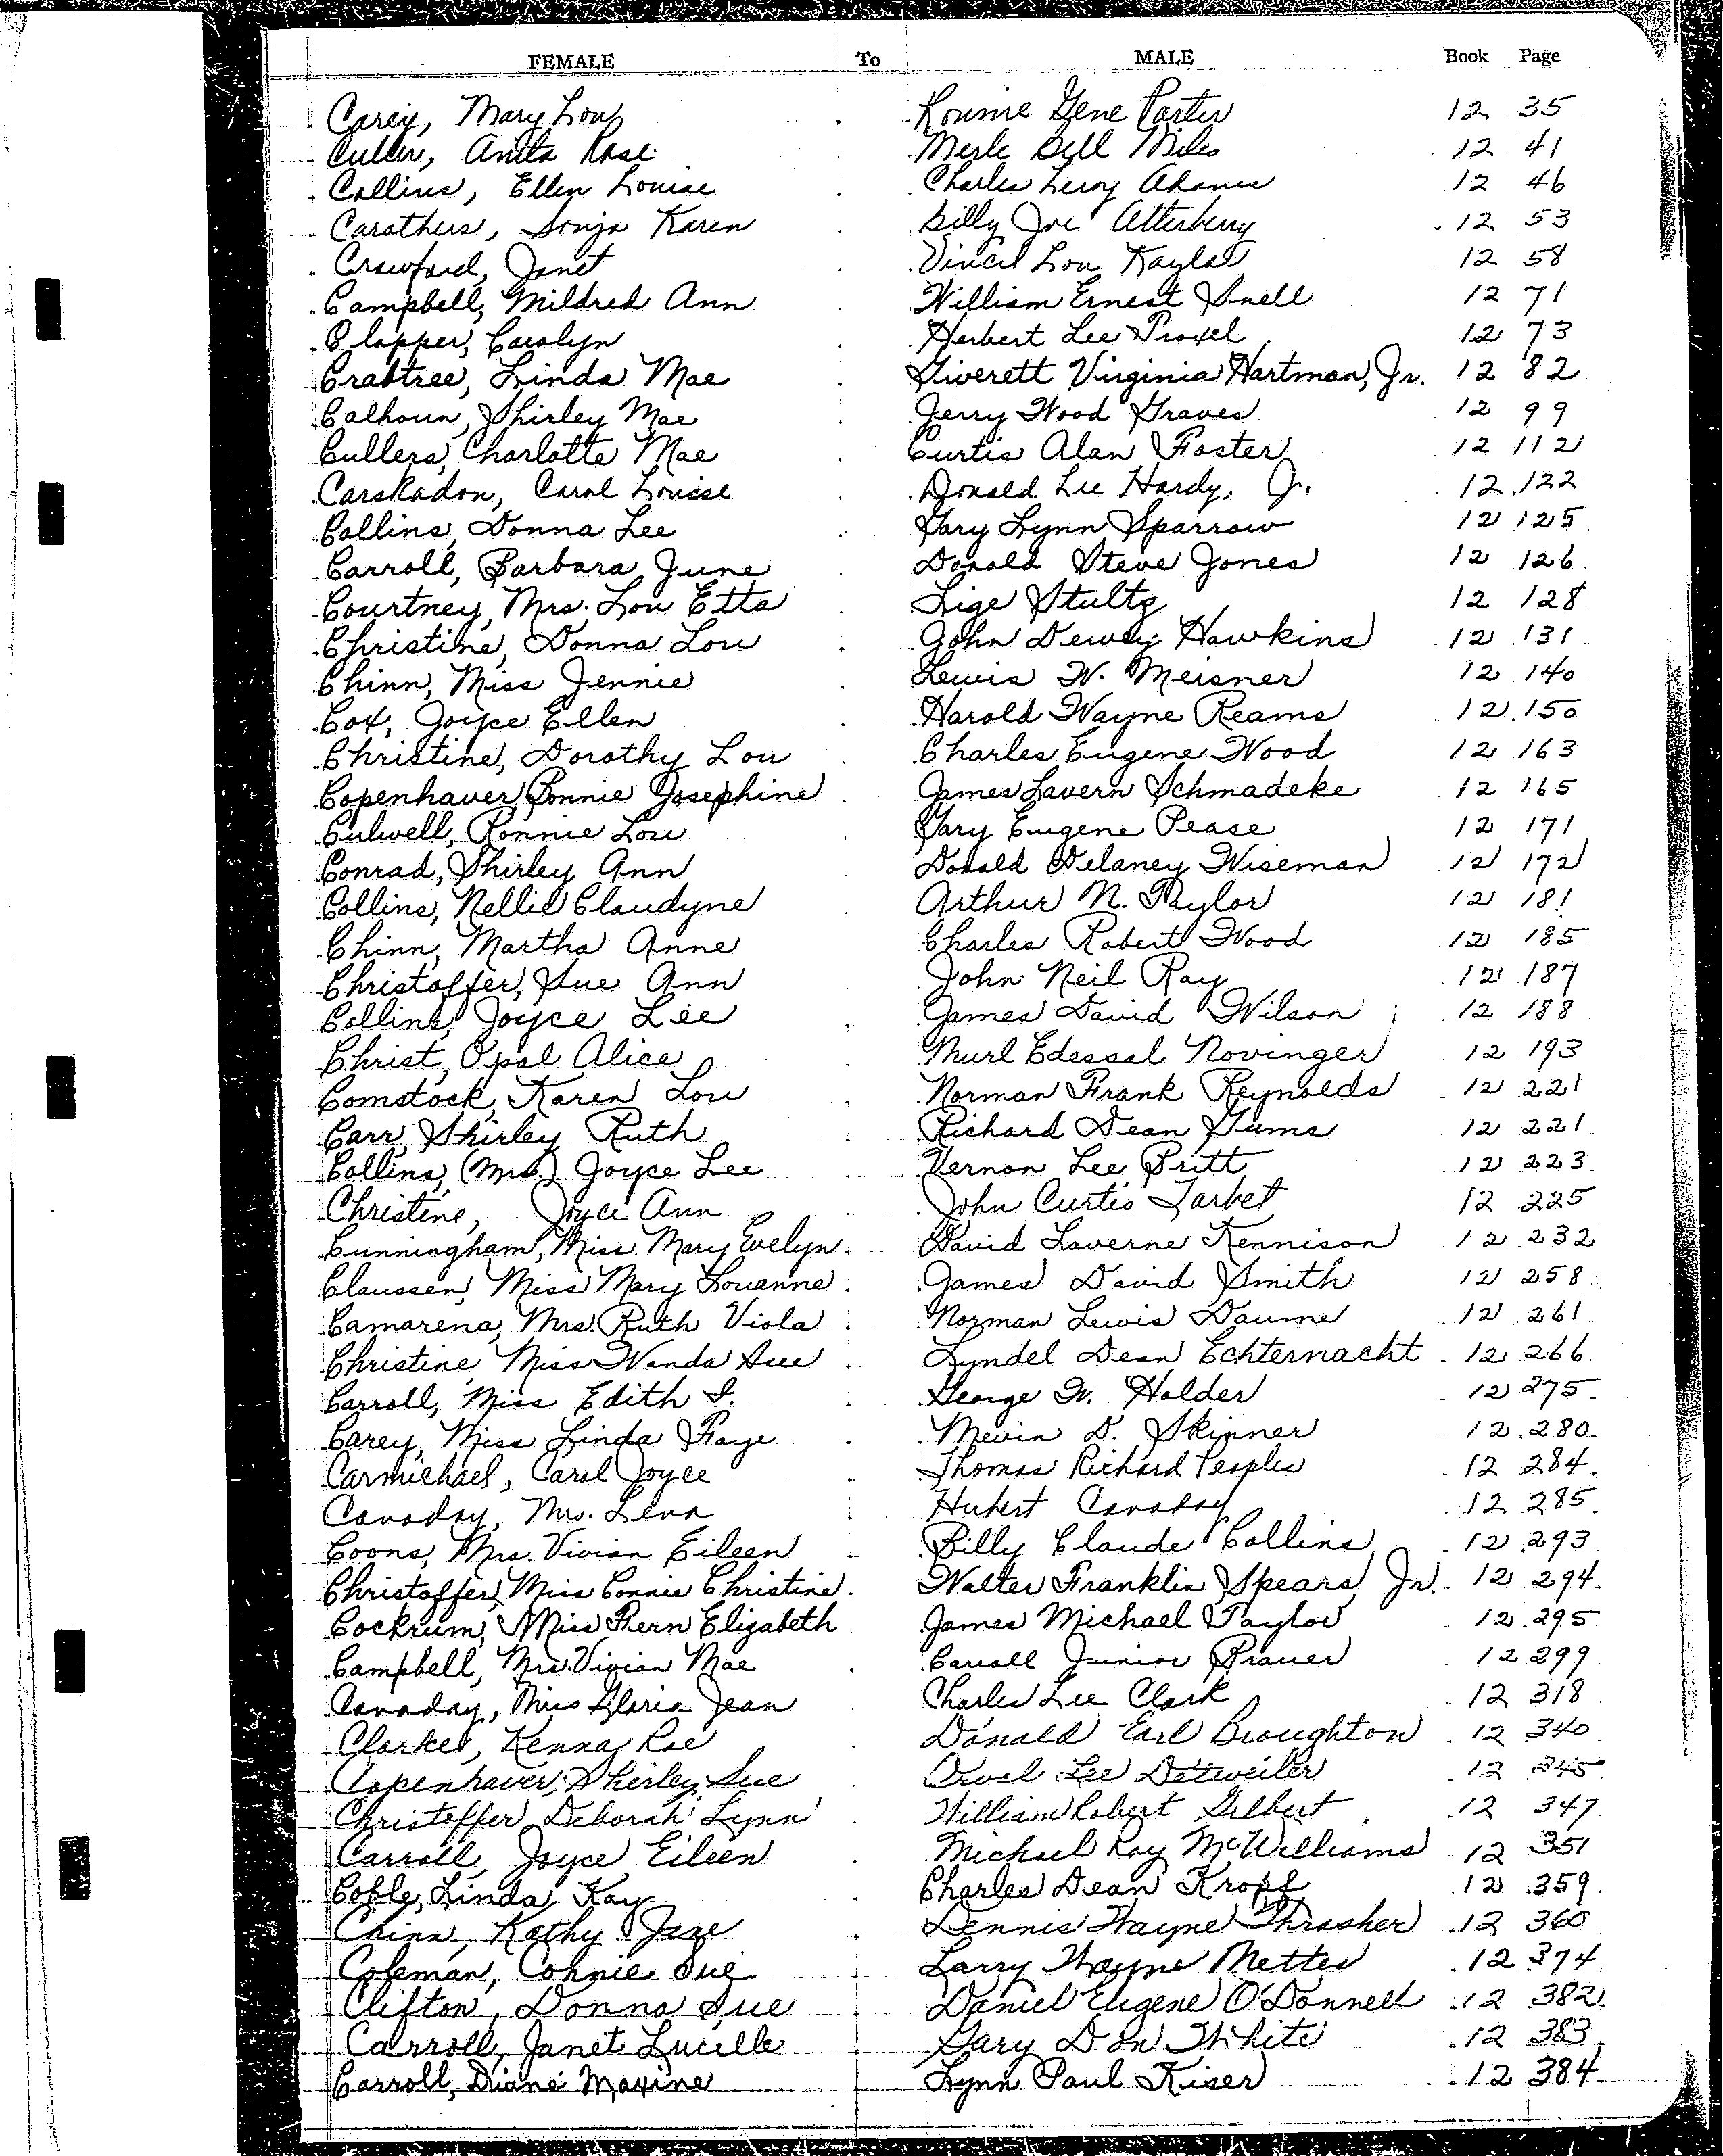 FEMALE To MALE Book Page
Carey, Mary Lou Ronnie Gene Porter 12 35
Culler, Anita Rose Merle Dell Miles 12 41
Collins, Ellen Louise Charles Leroy Adams 12 46
Carothers, Sonja Karen Billy Joe Atterberry 12 53
Crawford, Janet Vincil Lou 12 58
Campbell, Mildred Ann William Ernest Snell 12 71
Clapper, Carolyn Herbert Lee Troxel 12 73
Crabtree, Linda Mae Giverett Virginia Hartman, Jr. 12 82
Calhoun, Shirley Mae Jerry Wood Graves 12 99
Cullers, Charlotte Mae Curtis Alan Foster 12 112
Carskadon, Carol Louise Donald Lee Hardy, Jr. 12 122
Collins, Donna Lee Gary Lynn Sparrow 12 125
Carroll, Barbara June Donald Steve Jones 12 126
Courtney, Mrs. Lou Etta Lige Stultz 12 128
Christine, Donna Lou John Dewey Hawkins 12 131
Chinn, Miss Jennie Lewis W. Meisner 12 140
Cox, Joyce Ellen Harold Wayne Reams 12 150
Christine, Dorothy Lou Charles Eugene Wood 12 163
Copenhaver, Bonnie Josephine James Lavern Schmadeke 12 165
Culwell, Ronnie Lou Gary Eugene Pease 12 171
Conrad, Shirley Ann Donald Delaney Wiseman 12 172
Collins, Nellie Claudyne Arthur N. Taylor 12 181
Chinn, Martha Anne Charles Robert Wood 12 185
Christoffer, Sue Ann John Neil Ray 12 187
Collins, Joyce Lee James David Wilson 12 188
Christ, Opal Alice Murl Edessal Novinger 12 193
Comstock, Karen Lou Norman Frank Reynolds 12 221
Carr, Shirley Ruth Richard Dean Gums 12 221
Collins, (Mrs.) Joyce Lee Vernon Lee Britt 12 223
Christine, Joyce Ann John Curtis Tarbet 12 225
Cunningham, Miss Mary Evelyn David Laverne Kennison 12 232
Claussen, Miss Mary Louanne James David Smith 12 258
Camarena, Mrs. Ruth Viola Norman Lewis Daume 12 261
Christine, Miss Wanda Sue Lyndel Dean Echternacht 12 266
Carroll, Miss Edith I. George W. Holder 12 275
Carey, Miss Linda Faye Mevin D. Skinner 12 280
Carmichael, Carol Joyce Thomas Richard Peoples 12 284
Canaday, Mrs. Lena Hubert Canaday 12 285
Coons, Mrs. Vivian Eileen Billy Claude Collins 12 293
Christoffer, Miss Connie Christine Walter Franklin Spears, Jr. 12 294
Cockrum, Miss Fern Elizabeth James Michael Taylor 12 295
Campbell, Mrs. Vivian Mae Carroll Junior Prauer 12 299
Canaday, Miss Gloria Jean Charles Lee Clark 12 318
Clarke, Kenna Rae Donald Earl Broughton 12 340
Copenhaver, Shirley Sue Orval Lee Detweiler 12 345
Christoffer, Deborah Lynn William Robert Gilbert 12 347
Carroll, Joyce Eileen Michael Ray McWilliams 12 351
Coble, Linda Kay Charles Dean Kropf 12 359
Chinn, Kathy Jane Dennis Wayne Thrasher 12 360
Coleman, Connie Sue Larry Wayne Mettes 12 374
Clifton, Donna Sue Daniel Eugene O'Donnell 12 382
Carroll, Janet Lucille Gary Don White 12 383
Carroll, Diane Maxine Lynn Paul Kiser 12 384